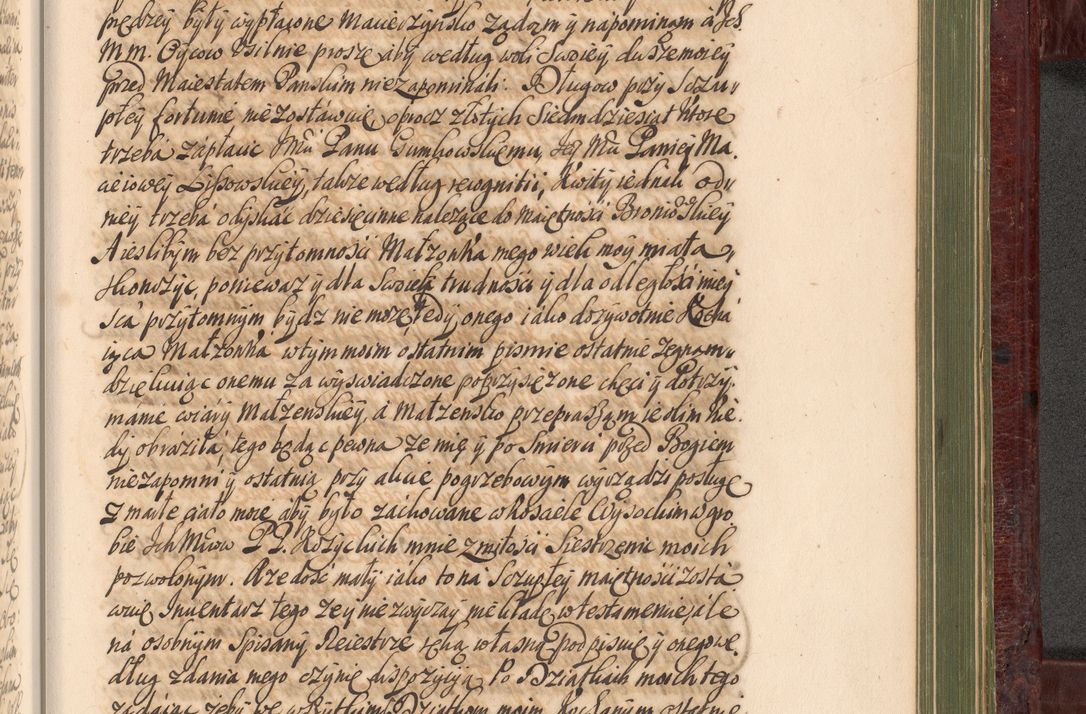 prędzey były wypłacone Macierzyńsko żądam y napominam á Jch
M m. Oycow usilnie proszę aby według woli Swoiey duszę moię
przed Maiestatem Panskim nie zapominali. Długow przy Szczu
płey fortunie nie zostawuię oprocz złotych Siedmdziesiąt Ktore
trzeba zápłacic Jmci Panu Gumkowskiemu, Jey Mci Paniey Ma
cieiowey Lissowskiey, także według recognitii, Kwity iednak od
niey trzeba odyskać dziesięcinne nalezące do Maiętności
A ieslibym bez przytomnosci Małzonka mego wiek moy miała
skonczyc, poniewasz y dla Swoich trudności y dla odległości miey
sca przytomnym bydz nie moze, Tedy onego iako dozywotnie Kocha
iąca Małzonka w tym moim ostatnim pismie ostatnie zegnam
dziękuiąc onemu za wyswiadczone poprzysiężone chęci y dotrzy
manie wiary Małzenskiey, á Małzensko przepraszam ieslim kie
dy obraziła, tego będąc pewna ze mię y po Smierci przed Bogiem
nie zapomni y ostatnią przy akcie pogrzebowym wyrządzi posługę
Zmarłe ciało moie aby było záchowane w Kosciele Wysockim w gro
bie Jch Mciow P P. Rozyckich mnie z miłości Siestrzenic moich
pozwolonym. A ze dość mały iako to ná Szczupłey maiętności zosta
wuię Inwentarz tego ze y nie zwyczay nie kładę w testamencie, ále
ná osobnym Spisany Reiestrze ręką własną podpisuię y onego we
dług zdania mego czynię dispozycyją Po Dziatkach moich tego
żądaiąc żeby we wszytkim Dziatkom moim Kochanym ostatnie